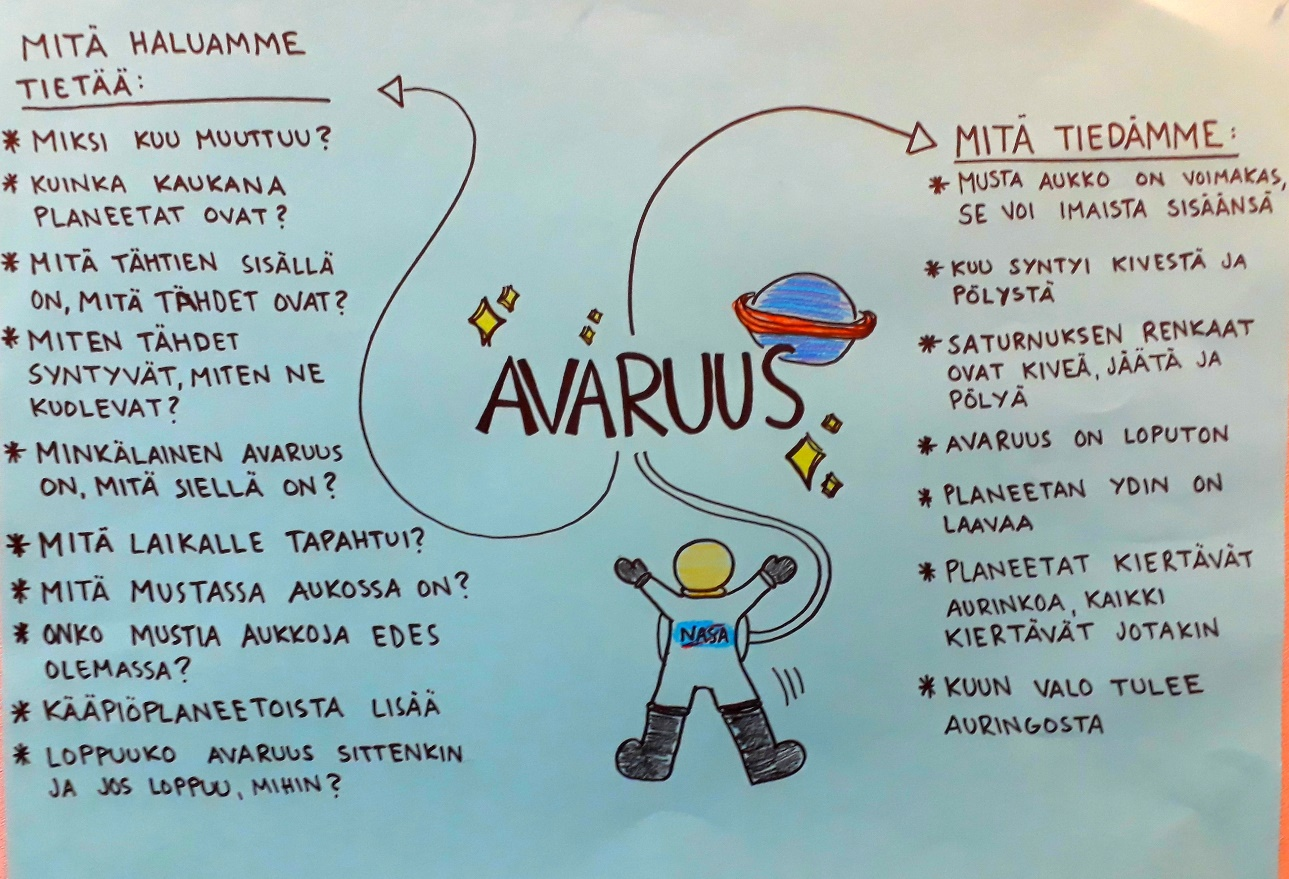 MITÄ HALUAMME
TIETÄÄ:
* MIKSI KUU MUUTTUU?
* KUINKA KAUKANA
PLANEETAT OVAT?
* MITÄ TÄHTIEN SISÄLLÄ
ON, MITÄ TÄHDET OVAT?
* MITEN TÄHDET
SYNTYVÄT, MITEN NE
KUOLEVAT?
* MINKÄLAINEN AVARUUS
ON, MITÄ SIELLÄ ON?
* MITÄ LAIKALLE TAPAHTUI?
* MITÄ MUSTASSA AUKOSSA ON?
* ONKO MUSTIA AUKKOJA EDES
OLEMASSA?
* KÄÄPIÖPLANEETOISTA LISÄÄ
* LOPPUUKO AVARUUS SITTENKIN
JA JOS LOPPUU, MIHIN?
AVARUUS
NASA
MITÄ TIEDÄMME:
* MUSTA AUKKO ON VOIMAKAS,
SE VOI IMAISTA SISÄÄNSÄ
* KUU SYNTYI KIVESTÄ JA
PÖLYSTÄ
* SATURNUKSEN RENKAAT
OVAT KIVEÄ, JÄÄTÄ JA
PÖLYÄ
* AVARUUS ON LOPUTON
* PLANEETAN YDIN ON
LAAVAA
* PLANEETAT KIERTÄVÄT
AURINKOA, KAIKKI
KIERTÄVÄT JOTAKIN
* KUUN VALO TULEE
AURINGOSTA